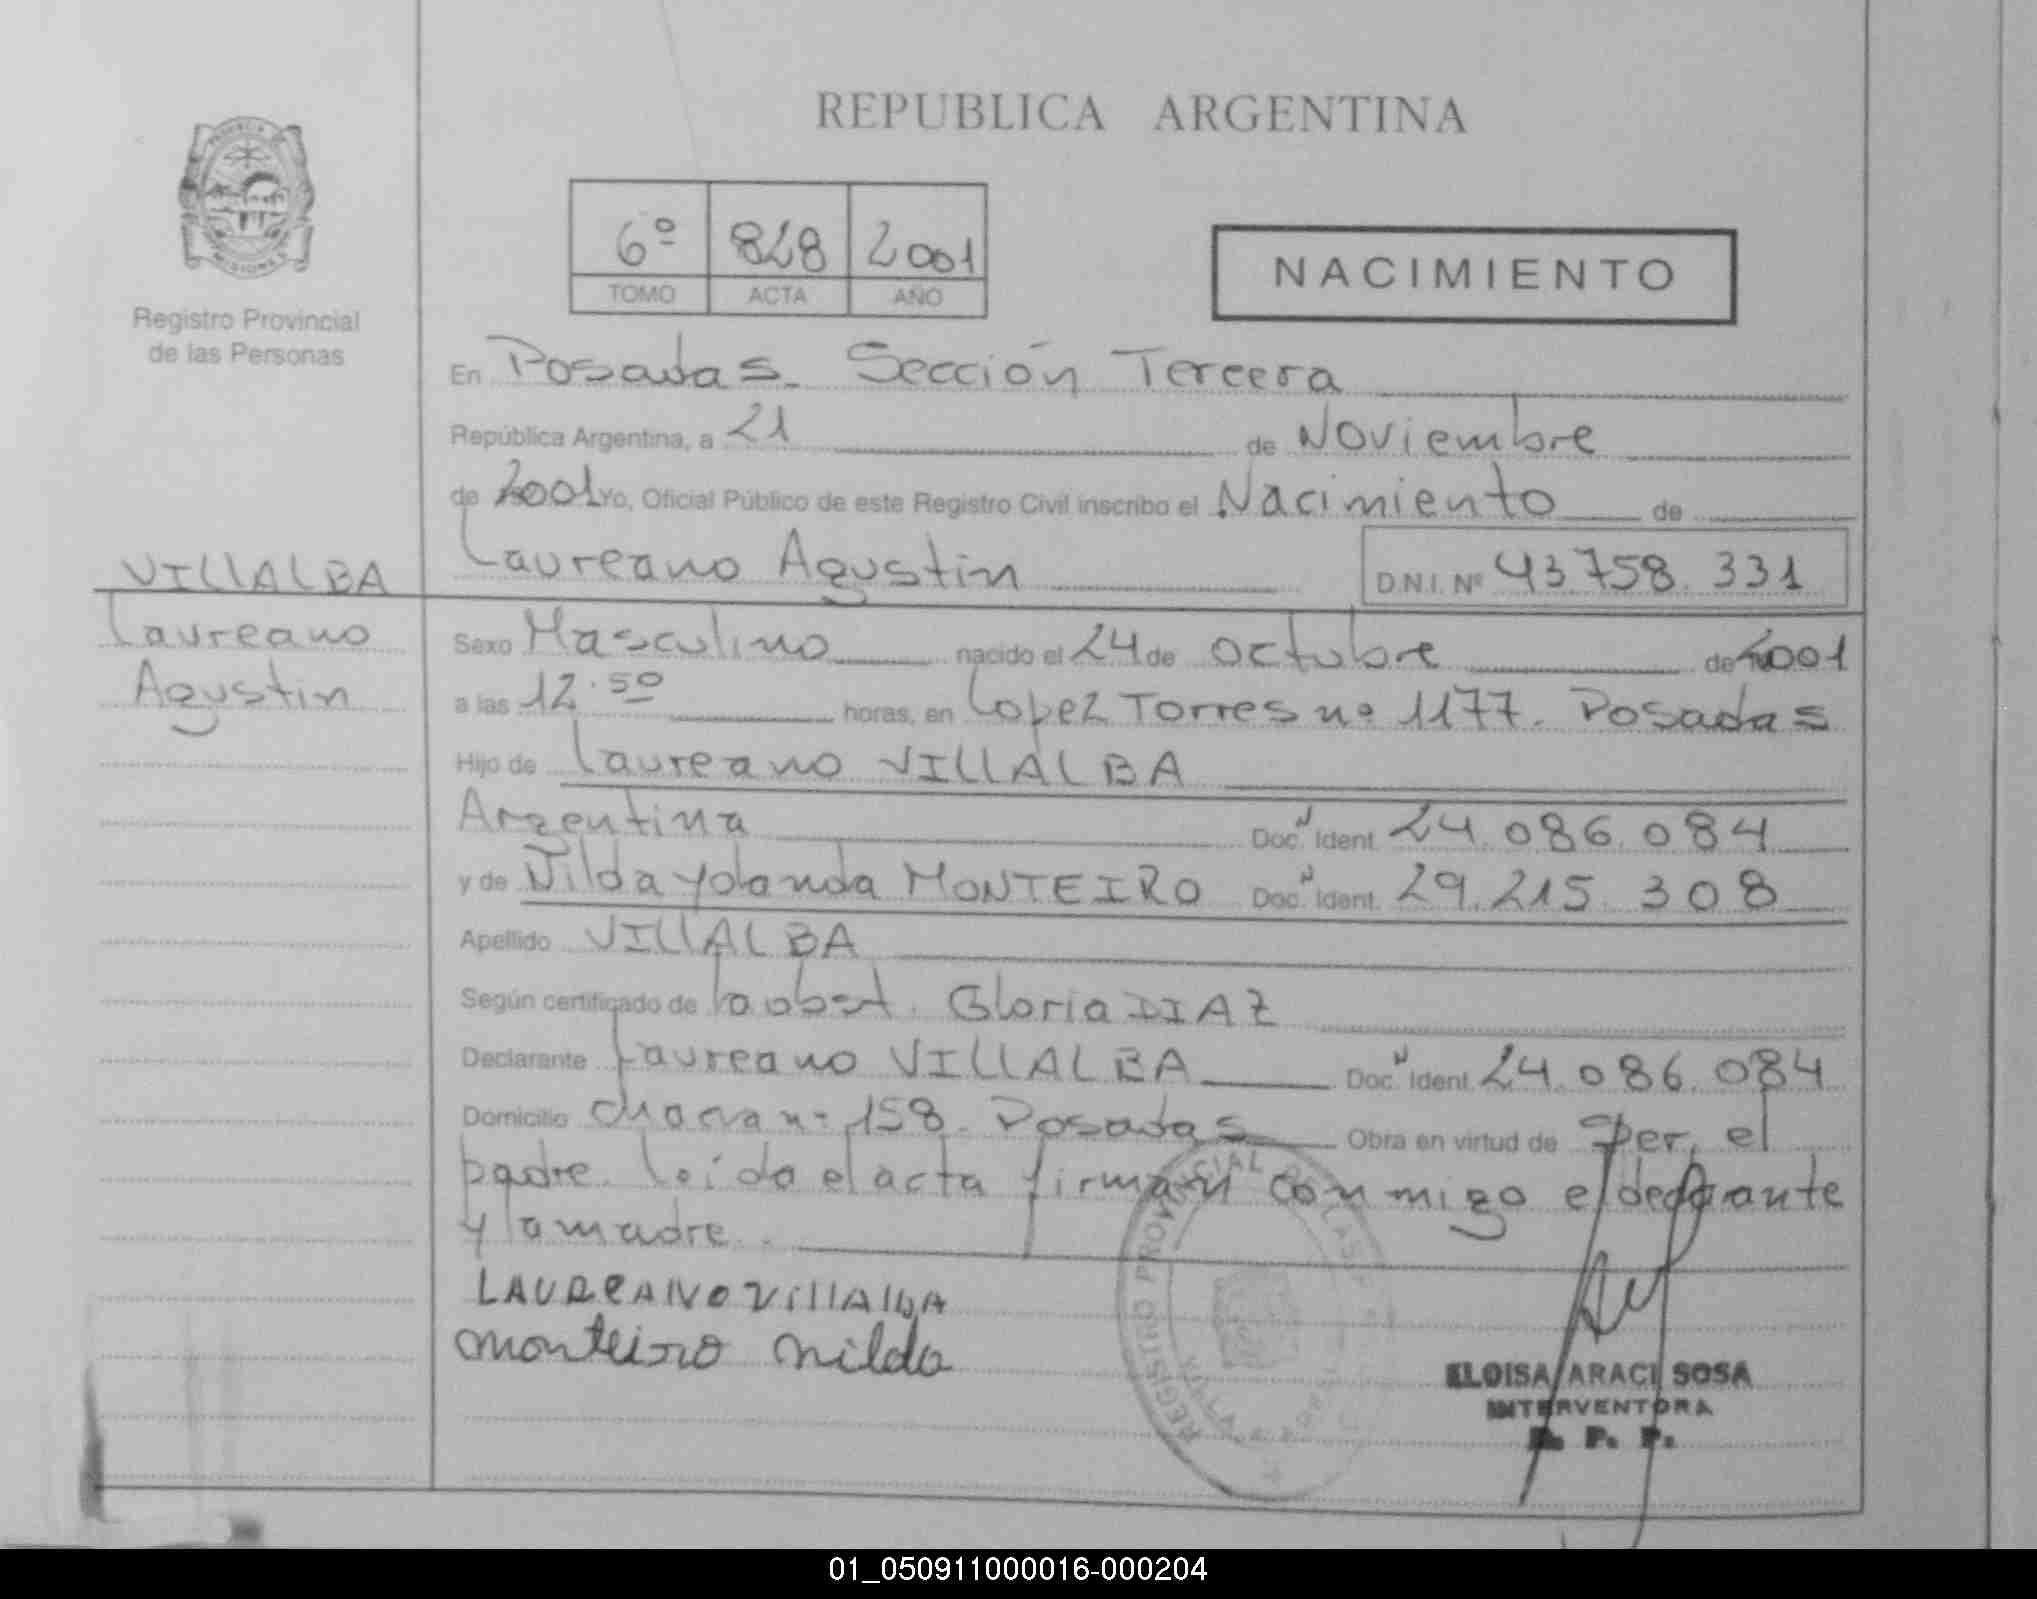 REPUBLICA ARGENTINA
PROVINCIA
MISIONES
Registro Provincial
de las Personas
6º 828 2001
TOMO ACTA AÑO
NACIMIENTO
En Posadas. Sección Tercera
República Argentina, a 21 de Noviembre
de 2001 Yo, Oficial Público de este Registro Civil inscribo el Nacimiento de
Laureano Agustin D.N.I. Nº 43758.331
VILLALBA
Laureano
Agustin
Sexo Masculino nacido el 24 de octubre de 2001
a las 12.50 horas, en Lopez Torres nº 1177. Posadas
Hijo de Laureano VILLALBA
Argentina Doc. N Ident. 24.086.084
y de Nilda Yolanda MONTEIRO Doc. N Ident. 29.215.308
Apellido VILLALBA
Según certificado de la obst. Gloria DIAZ
Declarante Laureano VILLALBA Doc. N Ident. 24.086.084
Domicilio nº 158. Posadas Obra en virtud de Ser, el
padre. Leída el acta firman conmigo el declarante
y la madre.
LAUREANO VILLALBA
Monteiro Nilda
REGISTRO PROVINCIAL DE LAS
ELOISA ARACI SOSA
INTERVENTORA
R. P. P.
01_050911000016-000204